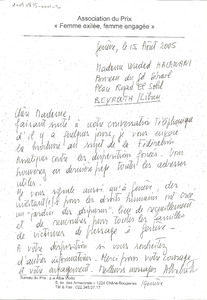 Association du Prix
« Femme exilée, femme engagée »
Genève, le 15 Août 2005
Madame Wadad HALAWANI
BEYROUTH / Liban
Chère Madame,
faisant suite à notre conversation téléphonique
d'il y a quelques jours, je vous envoie
la brochure au sujet de la Fédération
Asiatique contre les disparitions forcées. Vous
trouverez en dernière page toutes les adresses
utiles.
Je vous signale aussi qu'à Genève, des
pour les droits humains ont créé
un "jardin des disparus", lieu de recueillement
et de rencontre pour toutes les familles
de victimes de passage à Genève.
A votre disposition si vous souhaitez
d'autres informations. Merci pour votre courage
et votre engagement. Meilleurs messages
1224 Chêne-Bougeries
Genève